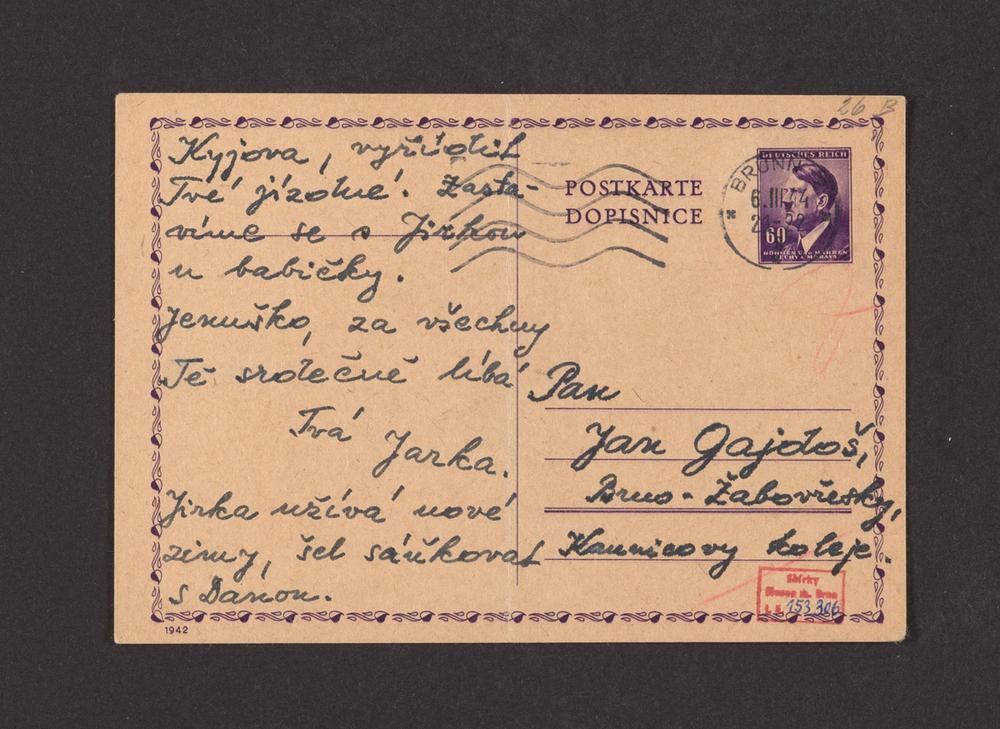 26 B
Kyjova, vyřídil
Tvé jízdné. Zasta-
víme se s Jirkou
u babičky.
Jenuško, za všechny
Tě srdečně líbá
Tvá
Jarka.
Jirka užívá nové
zimy, šel sáňkovat
s Danou.
1942
POSTKARTE
DOPISNICE
DEUTSCHES REICH
60
BÖHMEN UND MÄHREN
ČECHY A MORAVA
BRÜNN
6.III.44
Pan
Jan Gajdoš,
Brno - Žabovřesky,
Kaunicovy koleje.
Sbírky
Musea m. Brna
i. č. 153 306